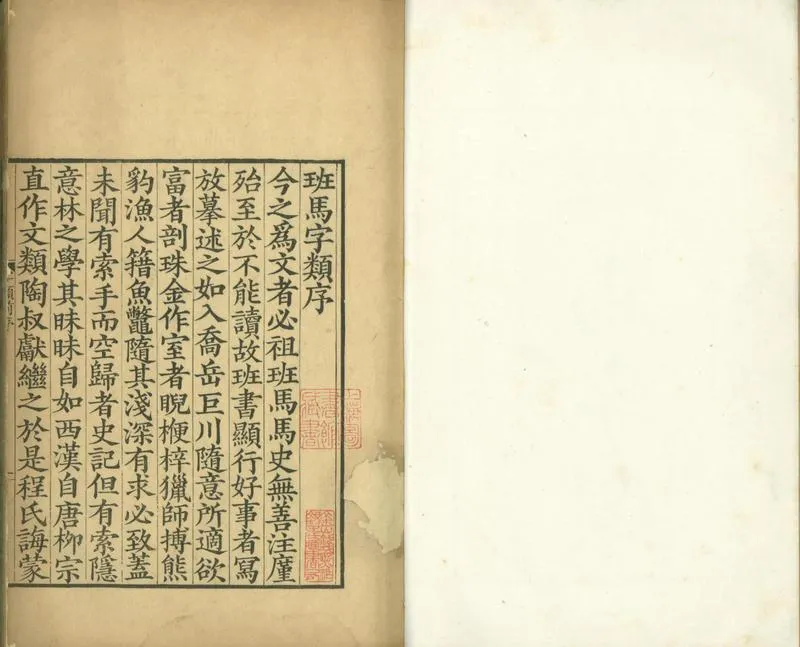 班馬字類序
今之爲文者必祖班馬馬史無善注廑
殆至於不能讀故班書顯行好事者寫
放摹述之如入喬岳巨川隨意所適欲
富者剖珠金作室者睨楩梓獵師搏熊
豹漁人籍魚鼈隨其淺深有求必致蓋
未聞有索手而空歸者史記但有索隱
意林之學其昧昧自如西漢自唐柳宗
直作文類陶叔獻繼之於是程氏誨蒙
上海圖
書館
藏書